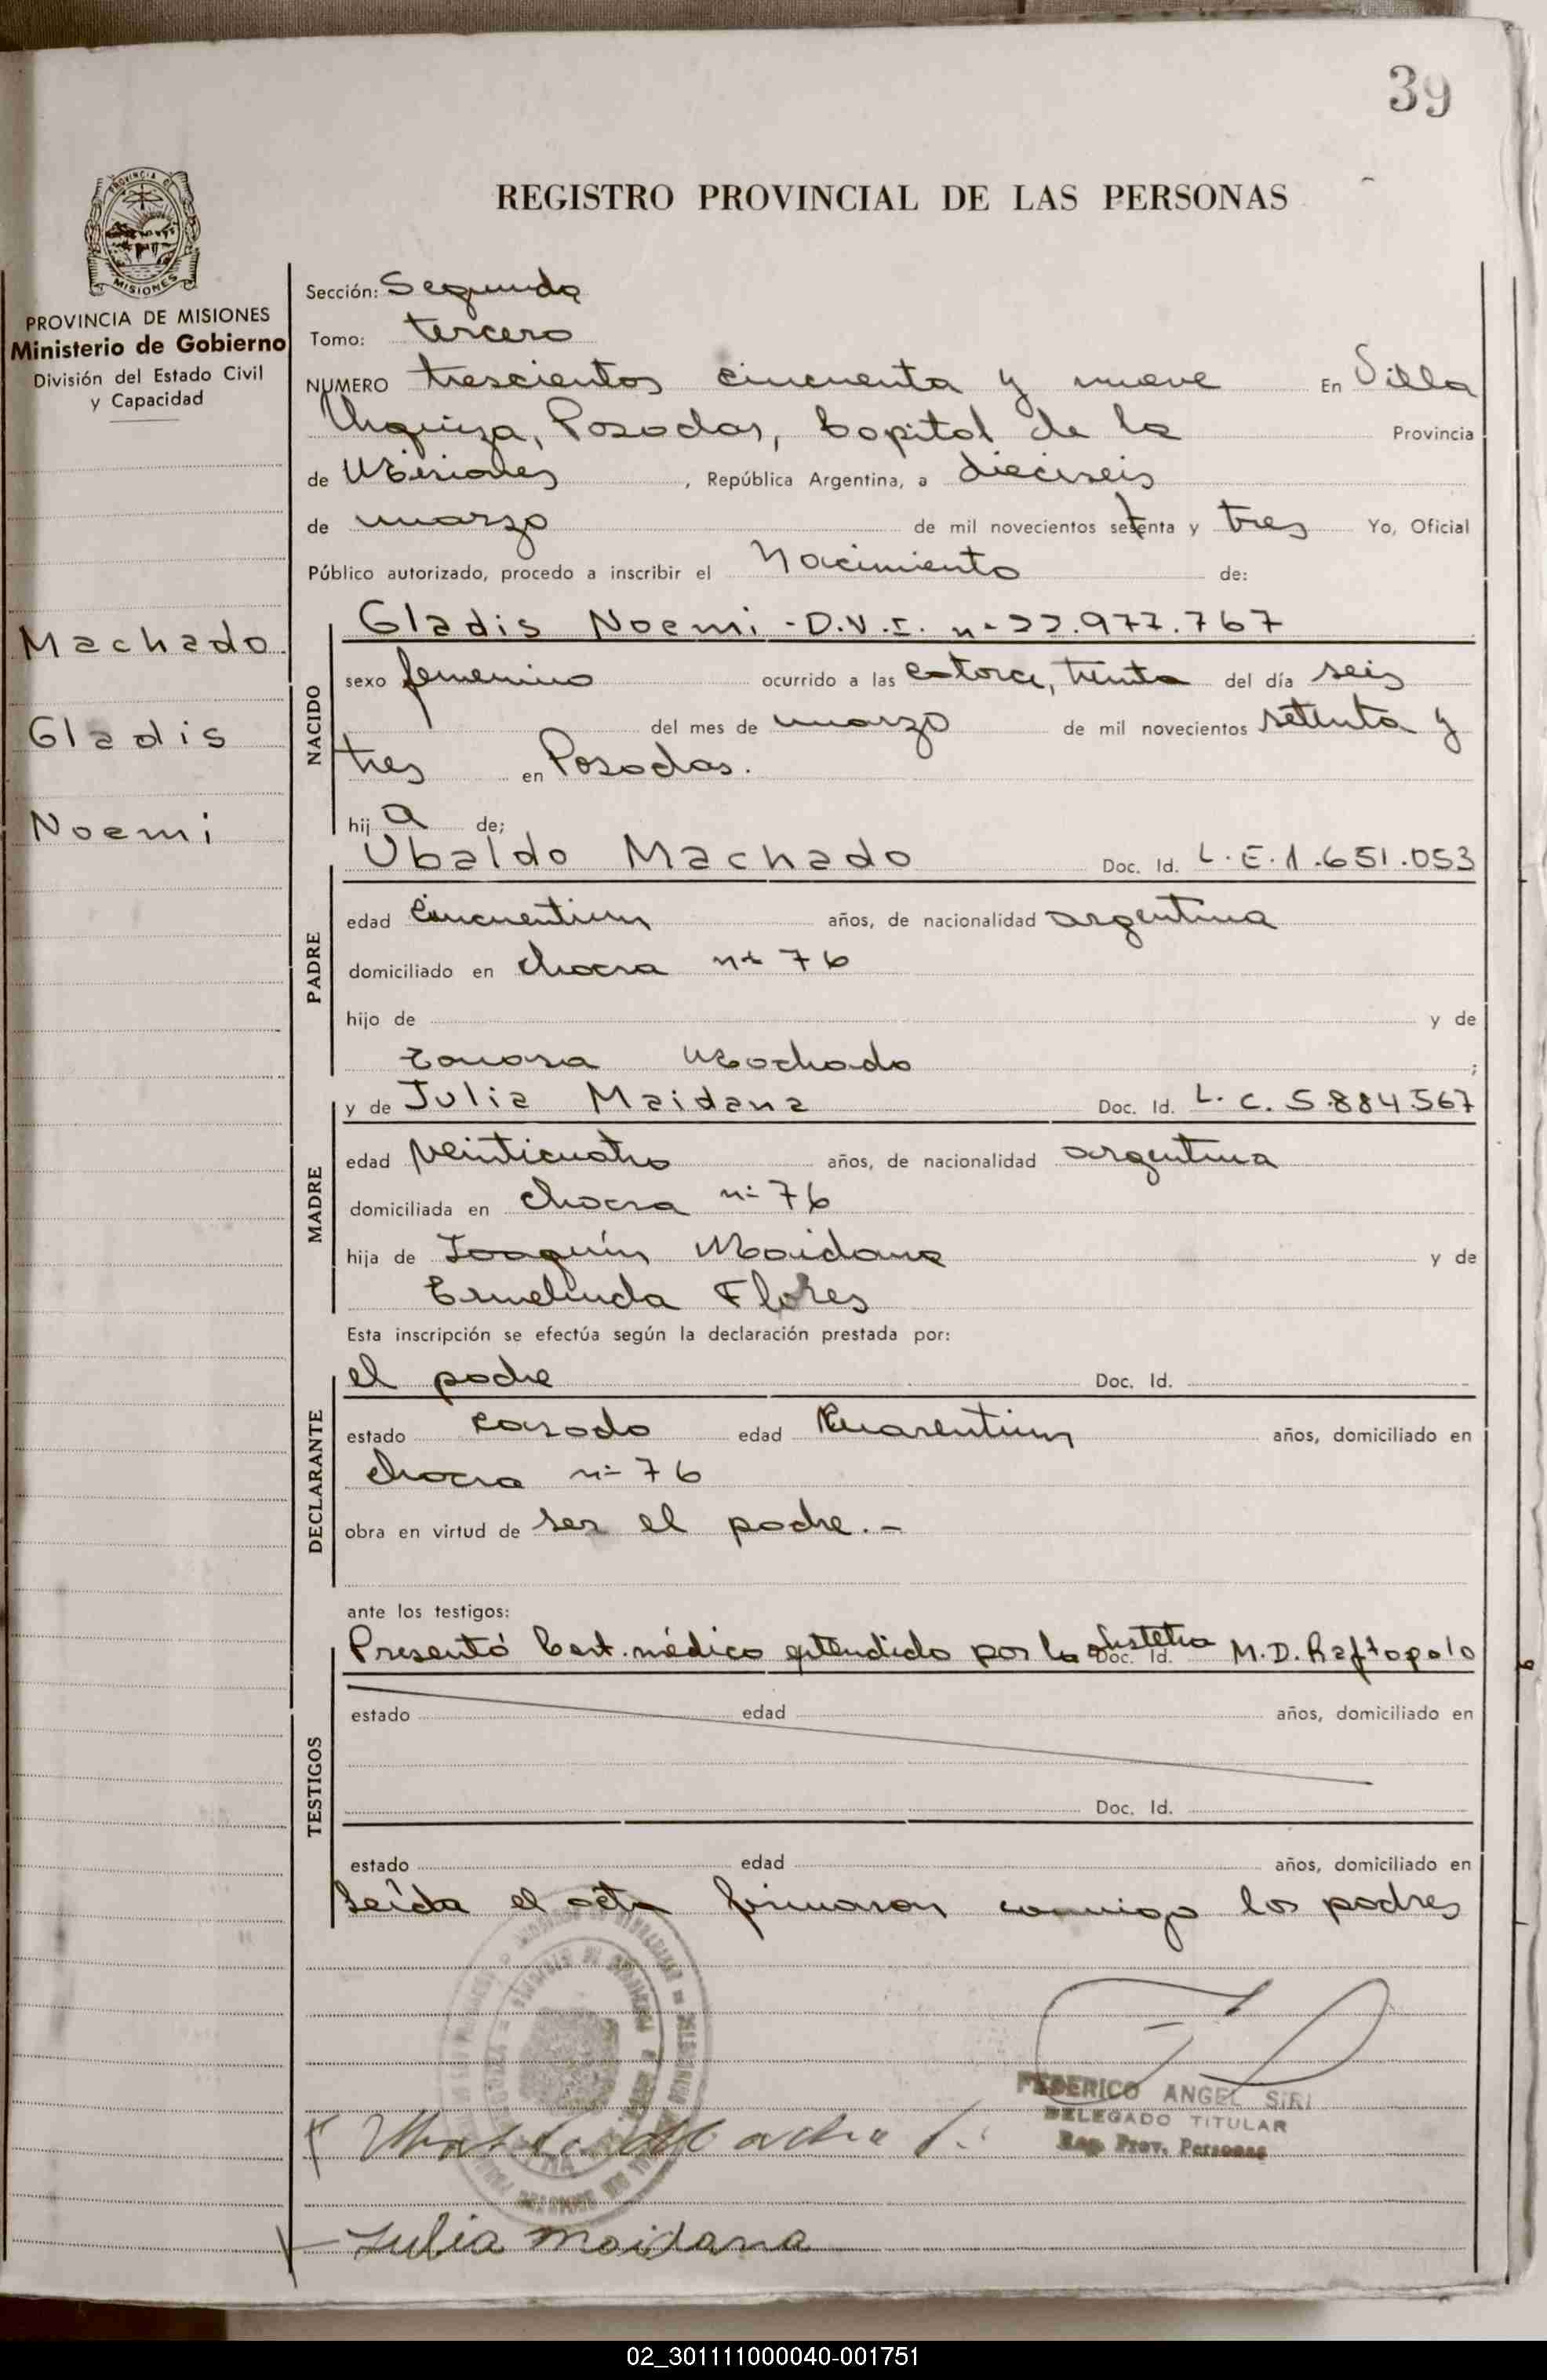 39
PROVINCIA DE
MISIONES
REGISTRO PROVINCIAL DE LAS PERSONAS
PROVINCIA DE MISIONES
Ministerio de Gobierno
División del Estado Civil
y Capacidad
Machado
Gladis
Noemi
Sección: Segunda
Tomo: tercero
NUMERO trescientos cincuenta y nueve En Villa
Urquiza, Posadas, Capital de la Provincia
de Misiones, República Argentina, a dieciseis
de marzo de mil novecientos setenta y tres Yo, Oficial
Público autorizado, procedo a inscribir el Nacimiento de:
NACIDO
Gladis Noemi - D.N.I. nº 22.977.767
sexo femenino ocurrido a las catorce, treinta del día seis
del mes de marzo de mil novecientos setenta y
tres en Posadas.
hija de;
PADRE
Ubaldo Machado Doc. Id. L.E. 1.651.053
edad años, de nacionalidad argentina
domiciliado en chacra nº 76
hijo de y de
Machado;
MADRE
y de Julia Maidana Doc. Id. L.C. 5.884.567
edad veinticuatro años, de nacionalidad argentina
domiciliada en chacra nº 76
hija de Joaquín Maidana y de
Ermelinda Flores
Esta inscripción se efectúa según la declaración prestada por:
DECLARANTE
el padre Doc. Id.
estado casado edad años, domiciliado en
chacra nº 76
obra en virtud de ser el padre.-
ante los testigos:
TESTIGOS
Presentó Cert. médico extendido por la obstetra Doc. Id. M.D. Raftopolo
estado edad años, domiciliado en
Doc. Id.
estado edad años, domiciliado en
Leída el acta firmaron conmigo los padres
FEDERICO ANGEL SIRI
DELEGADO TITULAR
Reg. Prov. Personas
Julia maidana
02_301111000040-001751